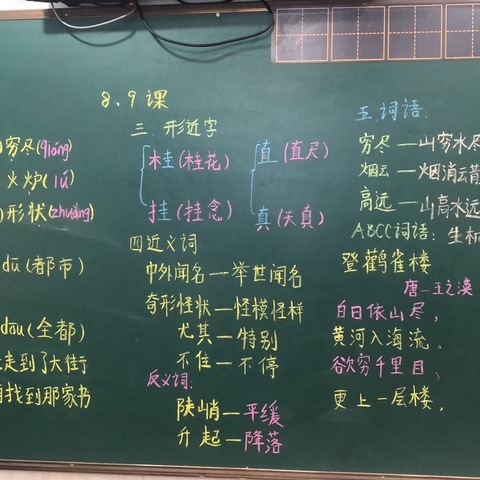 8、9课
穷尽(qióng)
火炉(lú)
形状(zhuàng)
dū(都市)
dōu(全都)
走到了大街
找到那家书
三、形近字
桂(桂花)
挂(挂念)
直(直尺)
真(天真)
四近义词
中外闻名—举世闻名
奇形怪状—怪模怪样
尤其—特别
不住—不停
反义词:
陡峭—平缓
升起—降落
五.词语:
穷尽—山穷水尽
烟云—烟消云散
高远—山高水远
ABCC词语:生机
登鹳雀楼
唐—王之涣
白日依山尽,
黄河入海流。
欲穷千里目,
更上一层楼。